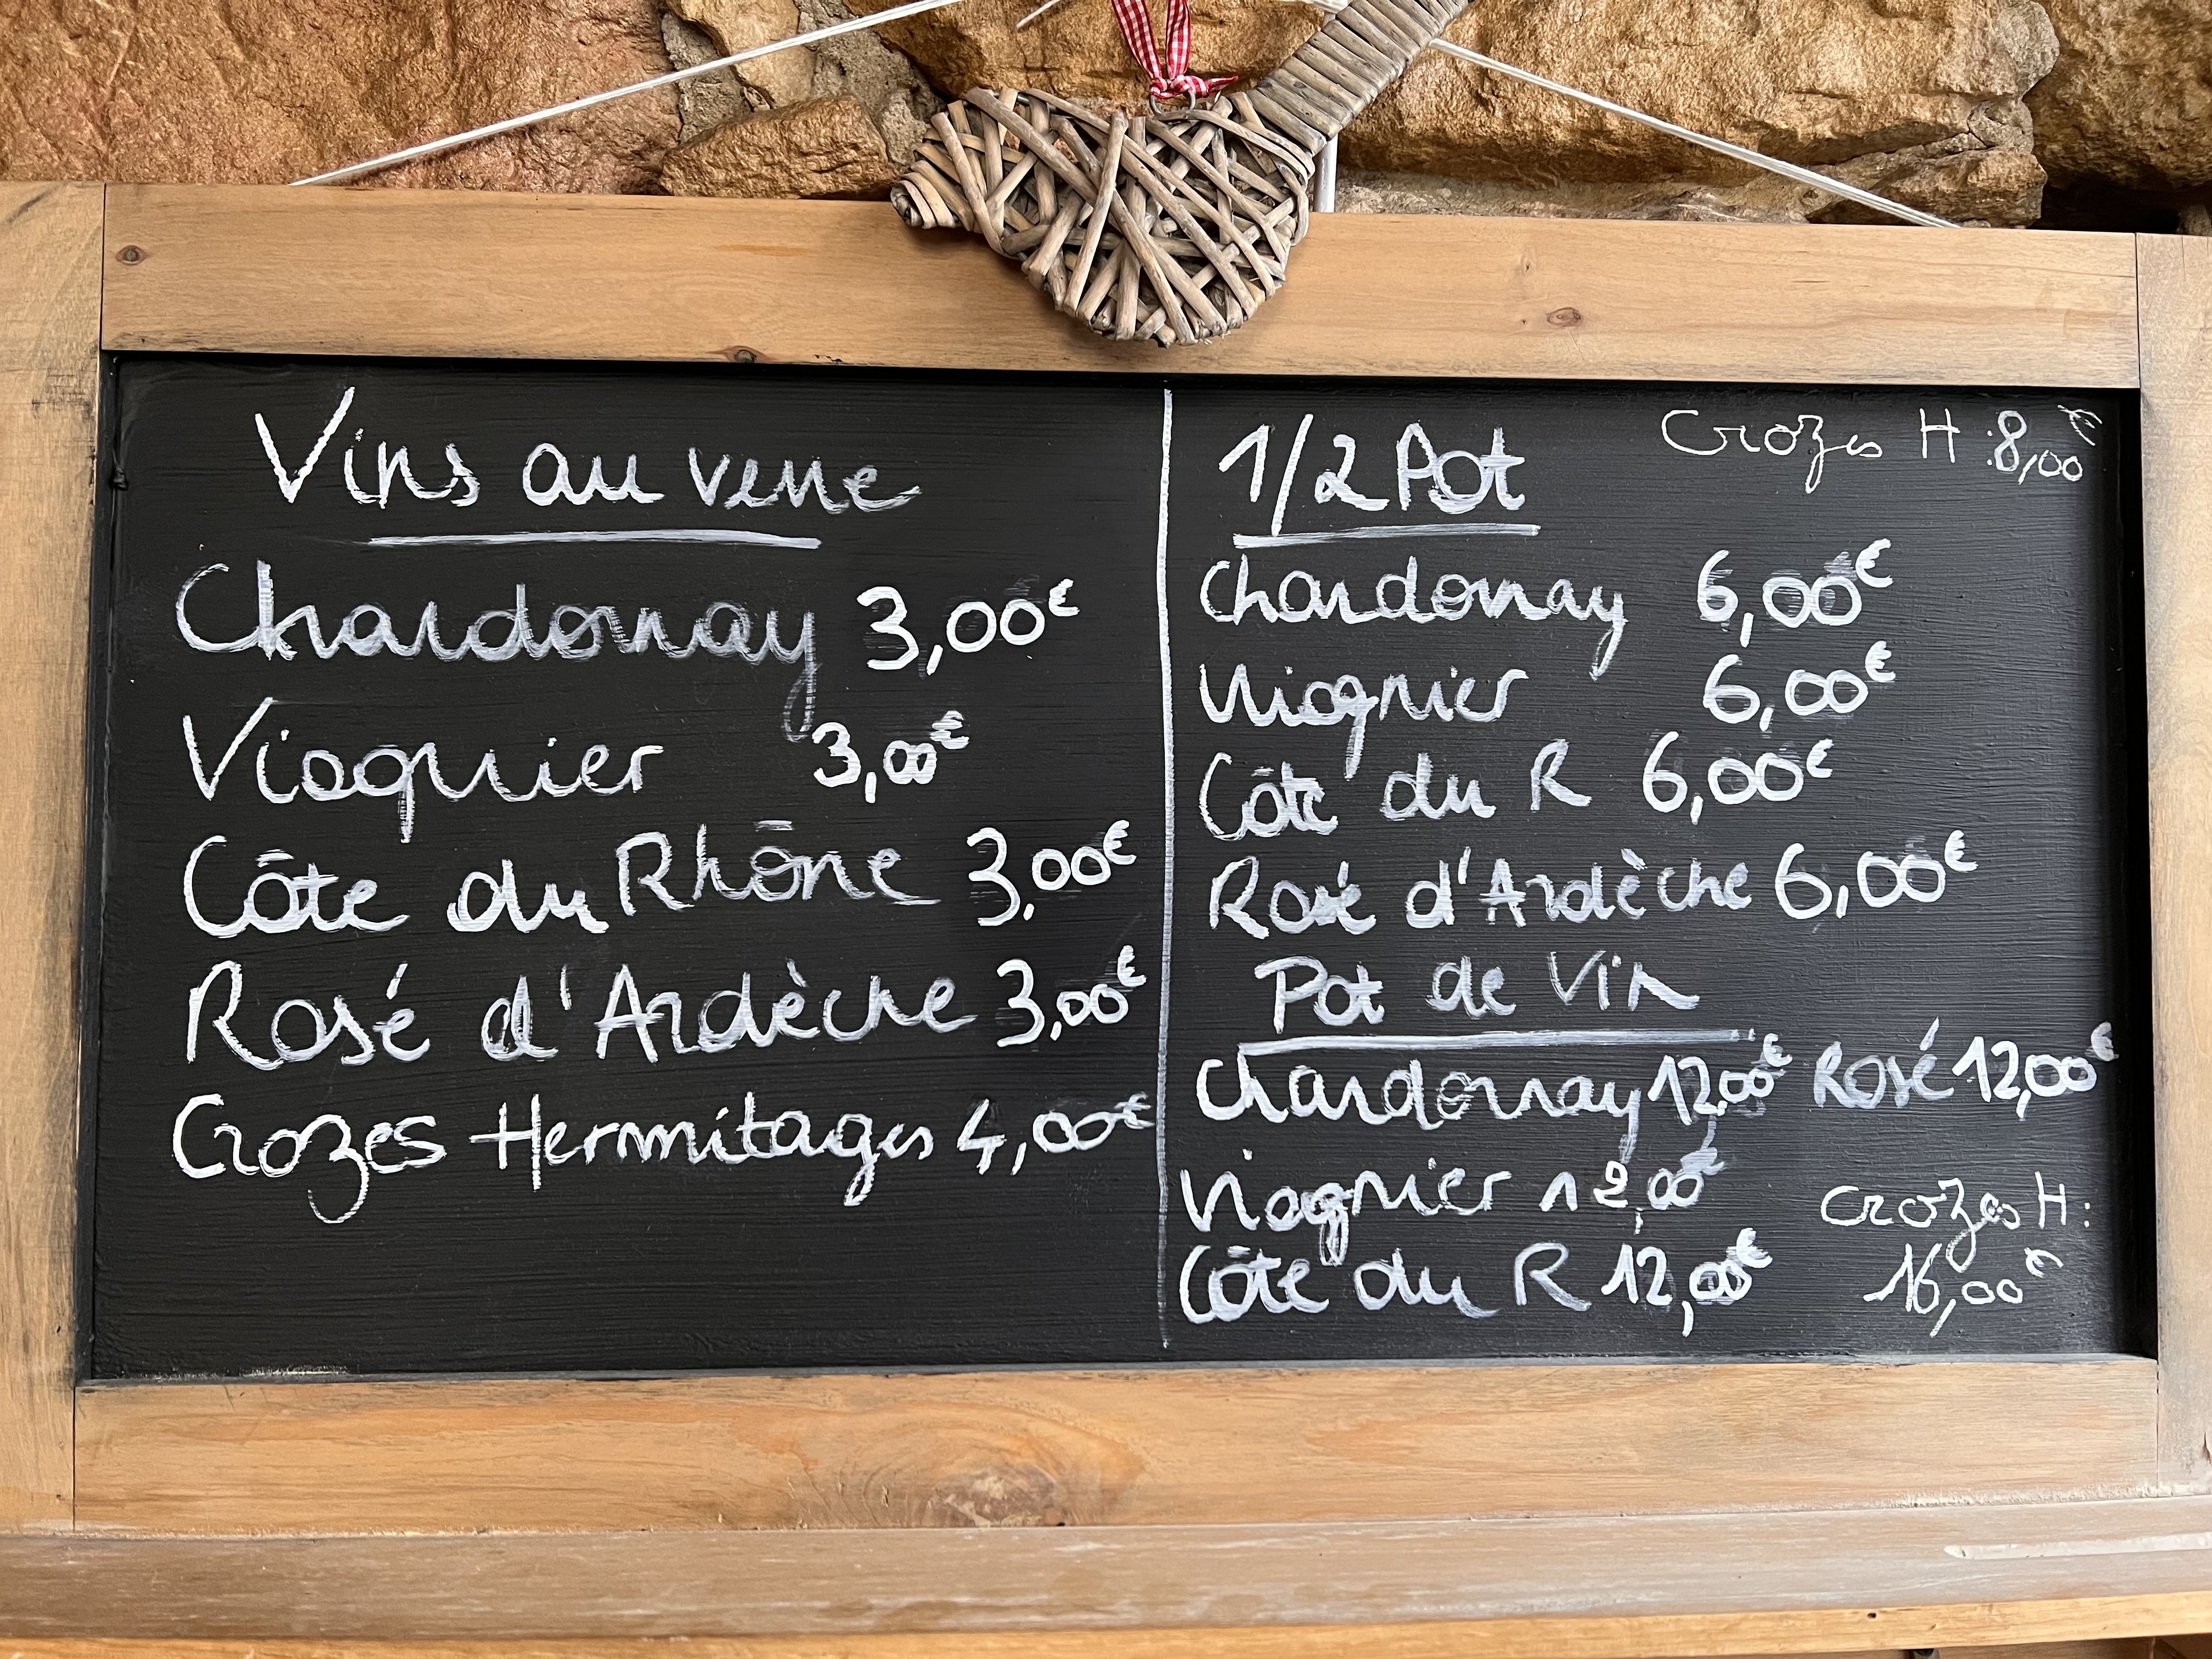 Vins au verre
Chardonnay 3,00€
Viognier 3,00€
Côte du Rhône 3,00€
Rosé d'Ardèche 3,00€
Crozes Hermitages 4,00€
1/2 Pot
Crozes H : 8,00€
Chardonnay 6,00€
Viognier 6,00€
Côte du R 6,00€
Rosé d'Ardèche 6,00€
Pot de Vin
Chardonnay 12,00€
Rosé 12,00€
Viognier 12,00€
Côte du R 12,00€
Crozes H :
16,00€